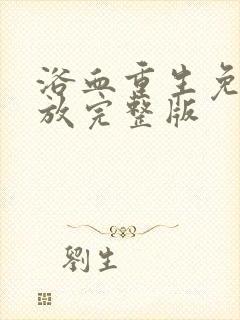 浴血重生免
放完整版
劉生